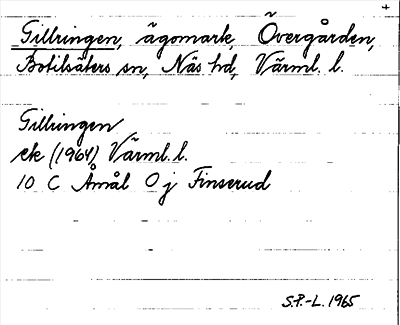 +
Gillringen, ägomark, Övergården,
Botilsäters sn, Näs hd, Värml. l.
Gillringen
ek (1964) Värml. l.
10 C Åmål 0 j Finserud
S.P.-L. 1965